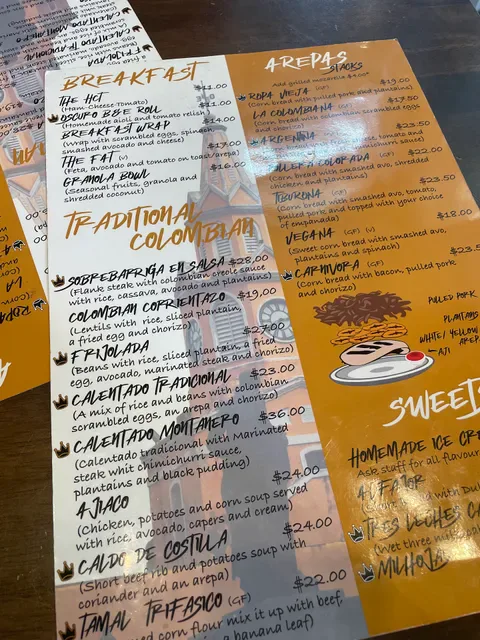 BREAKFAST
THE HCT $11.00
(Ham, Cheese, Tomato)
OSCURO B&E ROLL $11.00
(Homemade aioli and tomato relish)
BREAKFAST WRAP $14.00
(Wrap with scrambled eggs, spinach
smashed avocado and cheese)
THE FAT (V) $17.00
(Feta, avocado and tomato on toast/arepa)
GRANOLA BOWL $16.00
(Seasonal fruits, granola and
shredded coconut)
TRADITIONAL
COLOMBIAN
SOBREBARRIGA EN SALSA $28.00
(Flank steak with colombian creole sauce
with rice, cassava, avocado and plantains)
COLOMBIAN CORRIENTAZO $19.00
(Lentils with rice, sliced plantain,
a fried egg and chorizo)
FRIJOLADA $27.00
(Beans with rice, sliced plantain, a fried
egg, avocado, marinated steak and chorizo)
CALENTADO TRADICIONAL $23.00
(A mix of rice and beans with colombian
scrambled eggs, an arepa and chorizo)
CALENTADO MONTAÑERO $36.00
(Calentado tradicional with Marinated
steak whit chimichurri sauce,
plantains and black pudding)
AJIACO $24.00
(Chicken, potatoes and corn soup served
with rice, avocado, capers and cream)
CALDO DE COSTILLA $24.00
(Short beef rib and potatoes soup with
coriander and an arepa)
TAMAL TRIFASICO (GF) $22.00
corn flour mix it up with beef,
a banana leaf)
AREPAS
STACKS
Add grilled mozzarella $4.00*
ROPA VIEJA (GF) $19.00
(Corn bread with pulled pork and plantains)
LA COLOMBIANA (GF) $17.50
(Corn bread with colombian scrambled eggs
and chorizo)
$23.50
smashed
sauce)
$22.00
(Corn bread with smashed avo, shredded
chicken and plantains)
TIBURONA (GF) $23.50
(Corn bread with smashed avo, tomato,
pulled pork and topped with your choice
of empanada)
VEGANA (GF) (V) $18.00
(Sweet corn bread with smashed avo,
plantains and spinach)
CARNIVORA (GF)
(Corn bread with bacon, pulled pork
and chorizo)
PULLED PORK
PLANTAINS
WHITE/YELLOW
AJI
HOMEMADE ICE
Ask staff for all
ALFAJOR
with
TRES LECHES
(Wet three
MILHOJA